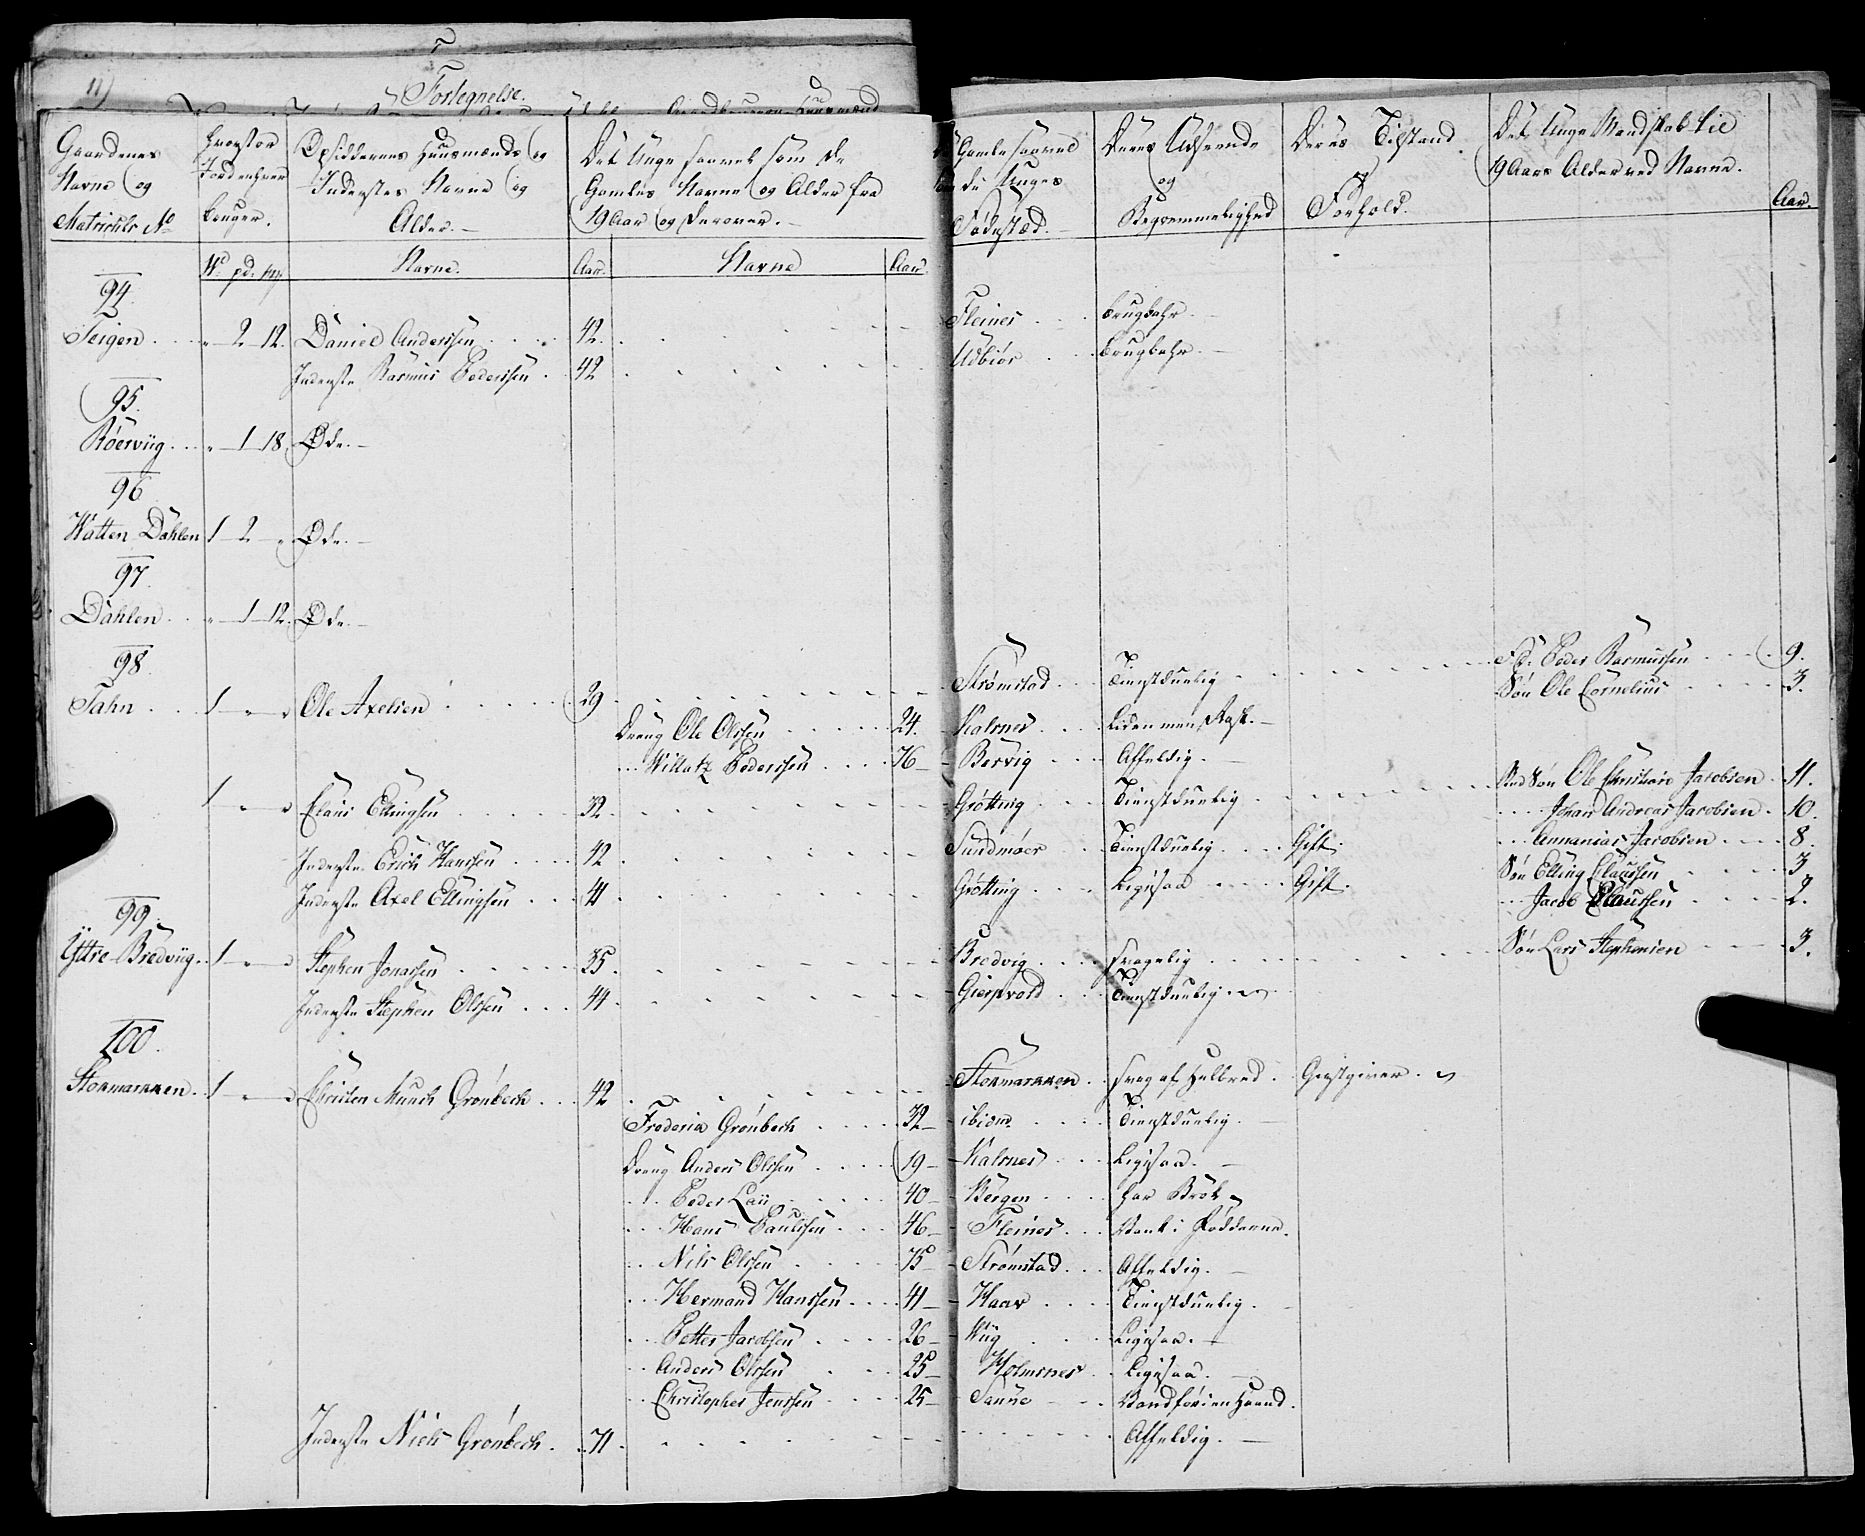 11)
Fortegnelse.
Gaardenes Navne og Matriculs No
hvorstor Jordenhver bruger.
Opsiddernes Huusmænds og Inderstes Navne og Alder.
Det Unge saavel som de Gamles Navne og Alder fra 19 Aar og derover.
Gamle saavel de Unges Fødested.
Deres Udseende og Beqvemmelighed
Deres Tilstand Forhold.
Det Unge Mandskab til 19 Aars Alder ved Navne.
Aar.
W. pd. mk. Navne. Aar. Navne Aar.
94.
Teigen . . „ 2 12. Daniel Anderssen . . 42. Fleines . . brugbahr.
Inderste Rasmus Pederssen . 42 Udbiør . . brugbahr.
95.
Røerviig . . „ 1 18. Øde.
96
Watten Dahlen 1 2 „ Øde.
97.
Dahlen . . „ 1 12. Øde.
98
Jahn . . 1 „ „ Ole Axelsen . . 29 Strømstad . . Tienstduelig . . Peder Rasmussen . . 9.
Søn Ole Cornelius . . 3.
Dreng Ole Olssen . . 24. Kalsnes . . Liden men Rask.
Willatz Pederssen . . 76 Børvig . . Affeldig.
1 „ „ Claus Ellingsen . . 32 Grøtting . . Tienstduelig . . Sted Søn Ole Christian Jacobsen . 11.
Johan Andreas Jacobsen . 10.
Inderste Erich Hanssen . . 42 Sundmøer . . Tienstduelig . . Gift. Annanias Jacobsen . . 8.
Inderste Axel Ellingsen . . 41 Grøtting . . Ligesaa . . Gift. Søn Elling Claussen . . 3
Jacob Claussen . . 2.
99.
Yttre Bredviig . . 1 „ „ Stephen Jonassen . . 35. Bredvig . . svagelig . . Søn Lars Stephensen . . 3.
Inderste Stephen Olssen . . 44 Giersvold . . Tienstduelig.
100.
Stokmarknen . 1 „ „ Christen Munch Grønbech . . 42 Stokmarknen . . svag af Helbred . Giestgiver.
Frederik Grønbech . . 32 ibidm. . . Tienstduelig.
Dreng Anders Olssen . . 19 Kalsnes . . Ligesaa.
Peder Lau . . 40 Bergen . . har Brok
Hans Paulssen . . 46 Fleines . . Vank i Fødderne.
Nils Olssen . . 75 Strømstad . . Affeldig.
Hermand Hanssen . . 41 Haav . . Tienstduelig.
Petter Jacobsen . . 26 Viig . . Ligesaa.
Anders Olssen . . 25 Holmsnes . . Ligesaa.
Christopher Jenssen . . 25 Sanne . . Vandføri en Haand.
Inderste Niels Grønbech . . 71. Affeldig.